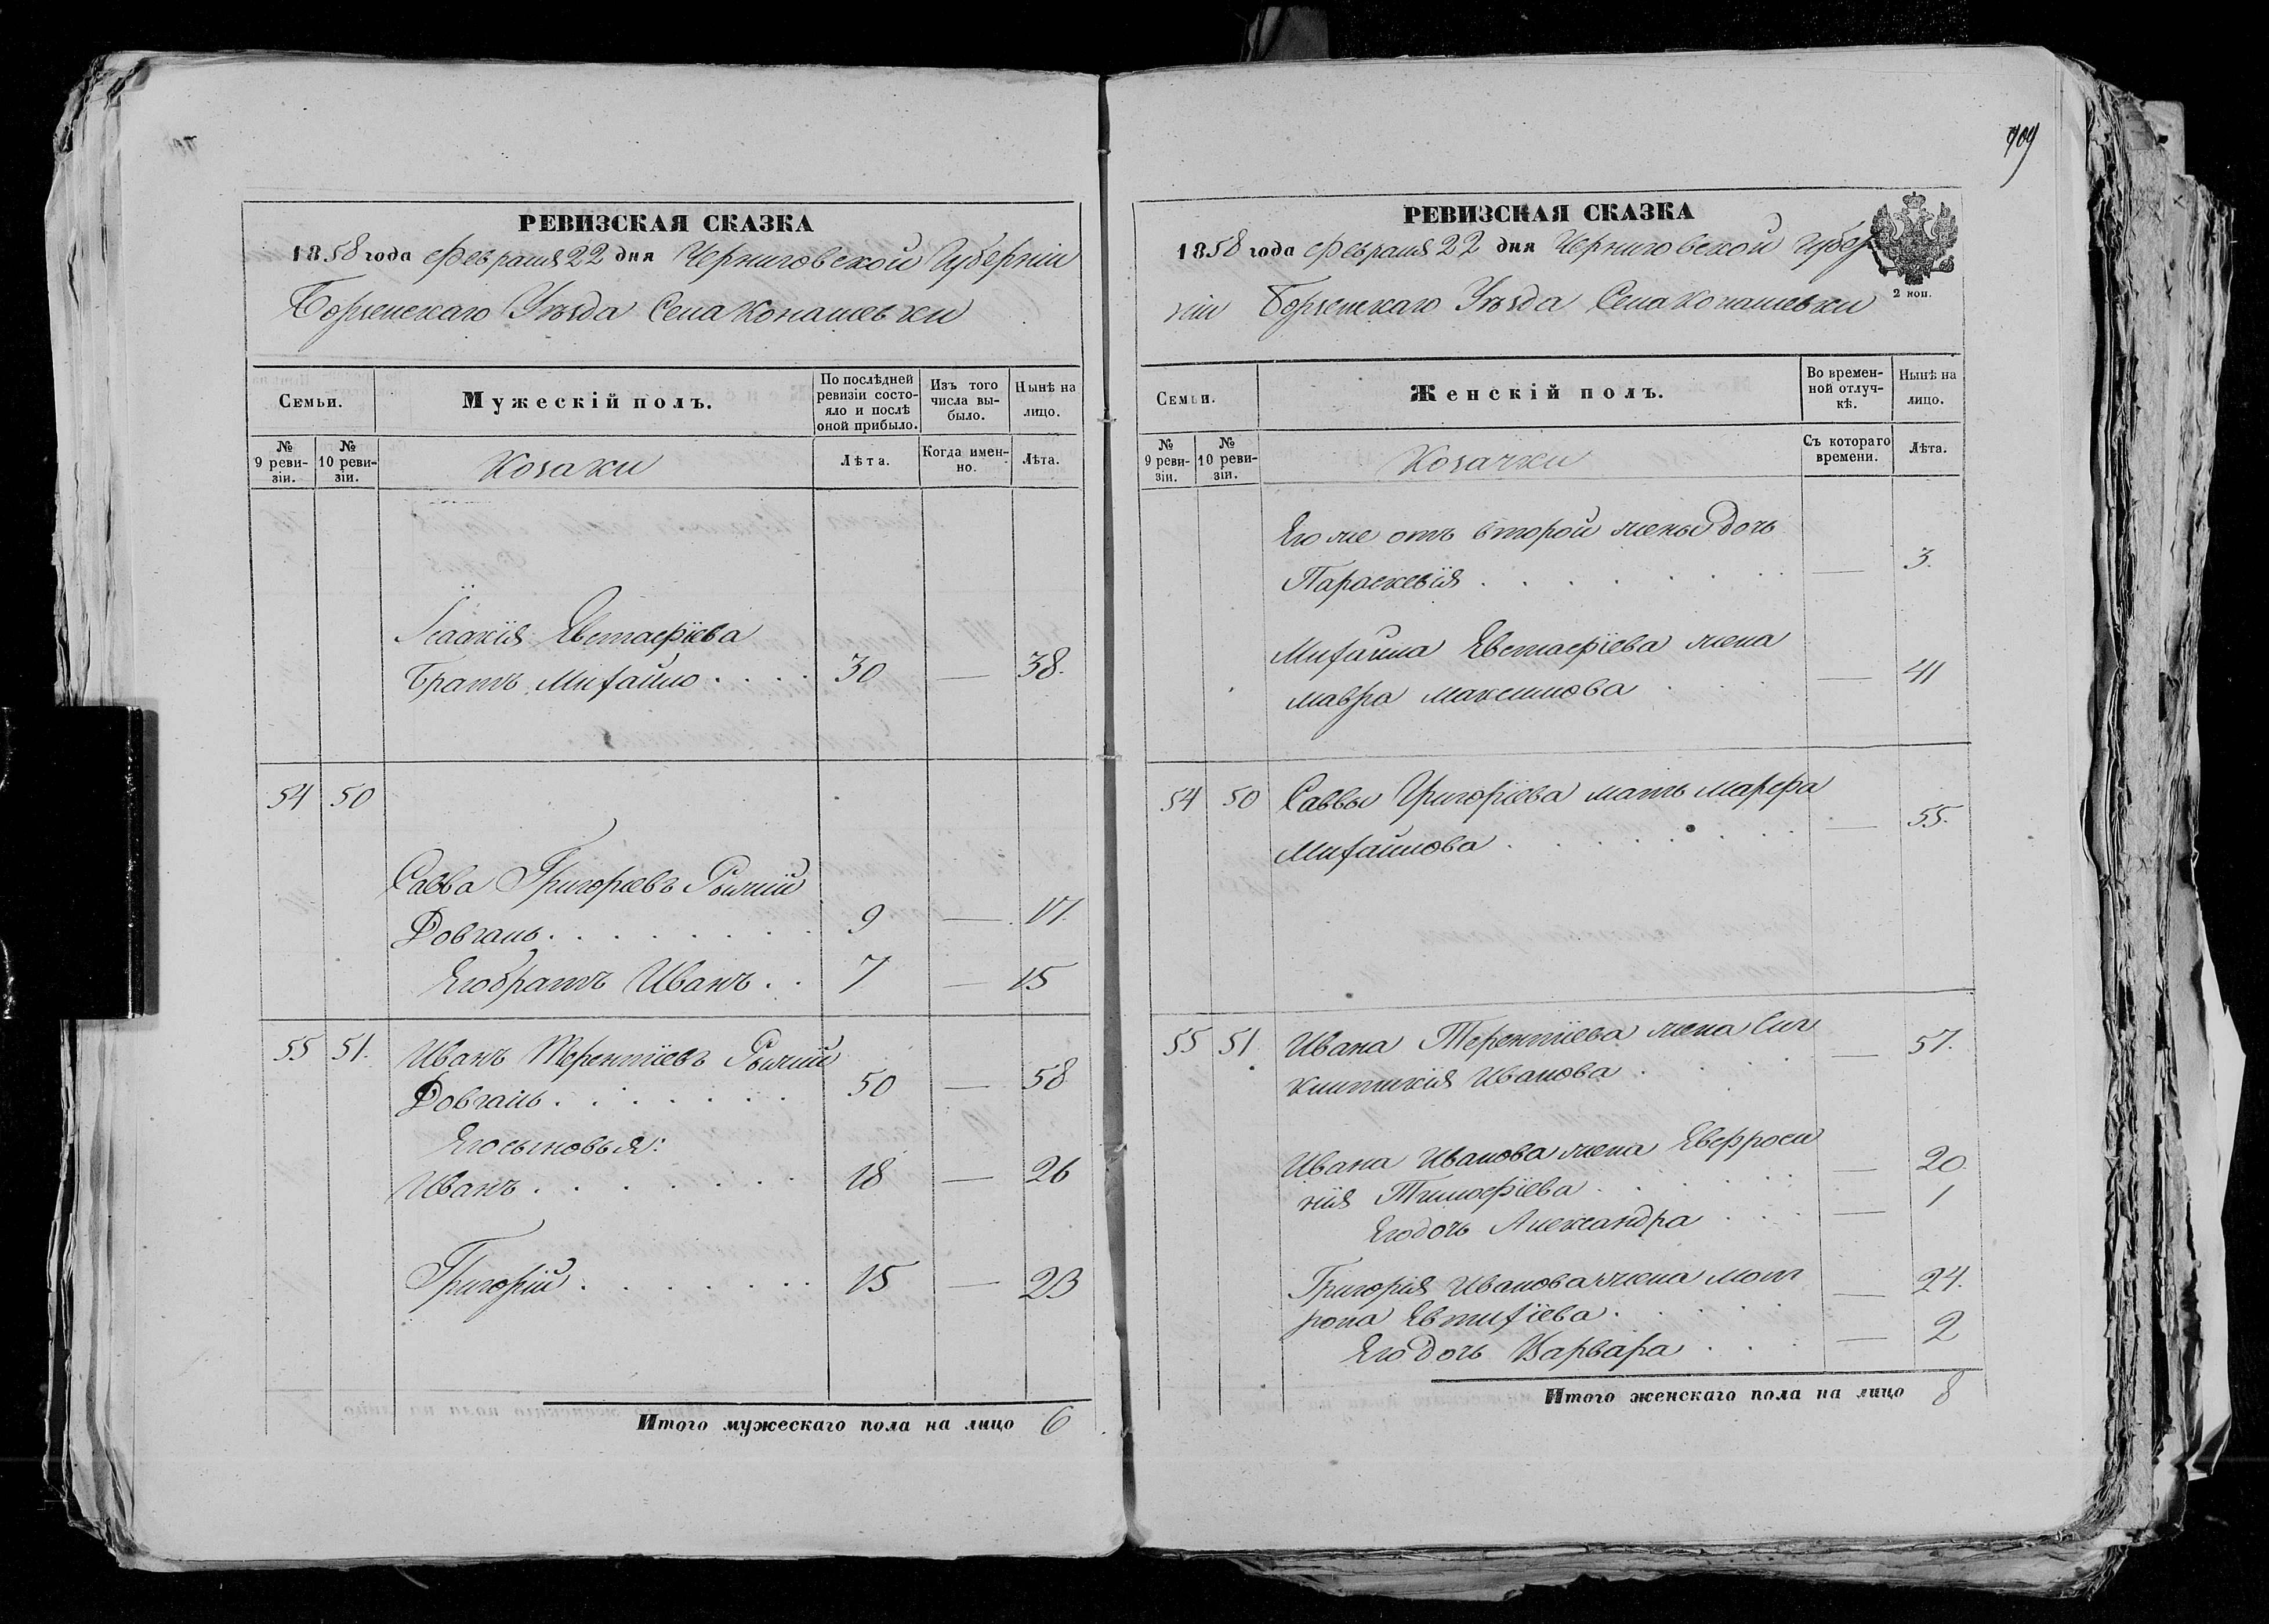 РЕВИЗСКАЯ СКАЗКА
1858 года Февраля 22 дня Черниговской Губерніи
Борзенскаго Уѣзда Села Конашевки
Семьи.
Мужескій полъ.
По послѣдней ревизіи состояло и послѣ оной прибыло.
Изъ того числа выбыло.
Нынѣ на лицо.
№ 9 ревизіи.
№ 10 ревизіи.
Козаки
Лѣта.
Когда именно.
Лѣта.
Исаакія Евстафіева
Братъ Михайло . . . . 30 — 38.
54 50
Савва Григоріевъ Рыжій
Довгаль . . . . . . . . 9 — 17.
Его братъ Иванъ . . 7 — 15
55 51. Иванъ Терентіевъ Рыжій
Довгаль . . . . . . . 50 — 58
Его сыновья:
Иванъ . . . . . . . 18 — 26
Григорій . . . . . . . 15 — 23
Итого мужескаго пола на лицо 6
709
РЕВИЗСКАЯ СКАЗКА
1858 года Февраля 22 дня Черниговской Губер
ніи Борзенскаго Уѣзда Села Конашевки
2 коп.
Семьи.
Женскій полъ.
Во временной отлучкѣ.
Нынѣ на лицо.
№ 9 ревизіи.
№ 10 ревизіи.
Козачки
Съ котораго времени.
Лѣта.
Его же отъ второй жены дочь
Параскевія . . . . . . . — 3.
Михайла Евстафіева жена
Мавра Максимова . . . — 41
54 50 Саввы Григоріева мать Марфа
Михайлова . . . . . . . — 55.
55 51 Ивана Терентіева жена Син
клитикія Иванова . . . . — 57.
Ивана Иванова жена Евфроси
нія Тимофіева . . . . . . — 20.
Его дочь Александра . . . — 1
Григорія Иванова жена Мот
рона Евтихіева . . . . . — 24.
Его дочь Варвара . . . — 2
Итого женскаго пола на лицо 8